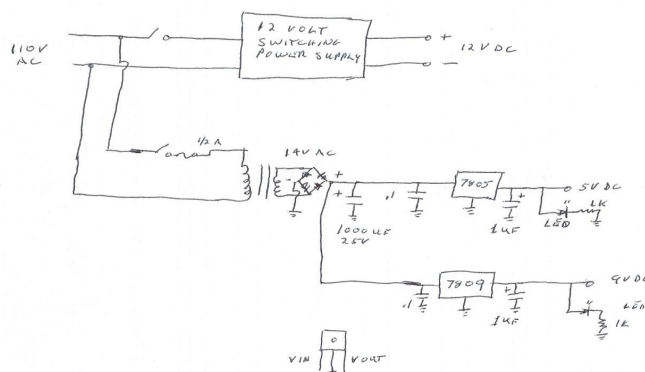 110V
AC
12 VOLT
SWITCHING
POWER SUPPLY
+
12VDC
−
1/2 A
14VAC
+
-
+
1000UF
25V
.1
7805
+
1UF
5V DC
LED
1K
.1
7809
+
1UF
9VDC
LED
1K
VIN
VOUT